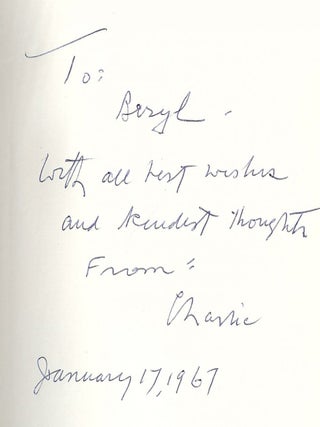 To:
Beryl -
With all best wishes
and kindest thoughts
From:
Charlie
January 17, 1967